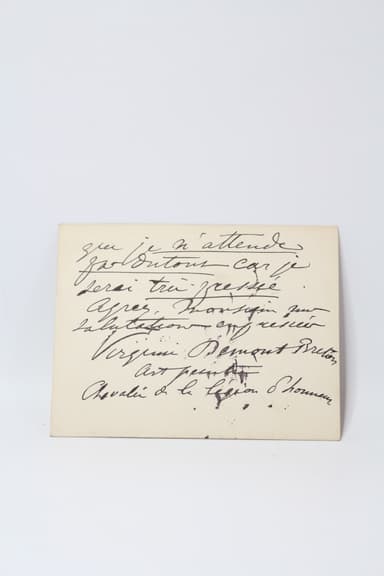 que je n'attende
pas du tout car je
serai très pressée
Agréez, Monsieur mes
salutations empressées
Virginie Demont Breton
Art peintre
Chevalier de la légion d'honneur